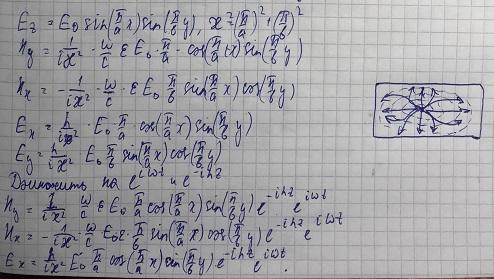 E_z = E_0 sin(π/a x) sin(π/b y), æ² = (π/a)² + (π/b)²
H_y = 1/(iæ²) · ω/c ε E_0 · π/a · cos(π/a x) sin(π/b y)
H_x = - 1/(iæ²) · ω/c · ε E_0 π/b sin(π/a x) cos(π/b y)
E_x = h/(iæ²) · E_0 · π/a · cos(π/a x) sin(π/b y)
E_y = h/(iæ²) E_0 π/b sin(π/a x) cos(π/b y)
Домножить на e^{iωt} и e^{-ihz}
H_y = 1/(iæ²) ω/c ε E_0 π/a cos(π/a x) sin(π/b y) e^{-ihz} e^{iωt}
H_x = - 1/(iæ²) · ω/c E_0 ε · π/b sin(π/a x) cos(π/b y) e^{-ihz} e^{iωt}
E_x = h/(iæ²) E_0 π/a cos(π/a x) sin(π/b y) e^{-ihz} e^{iωt}.